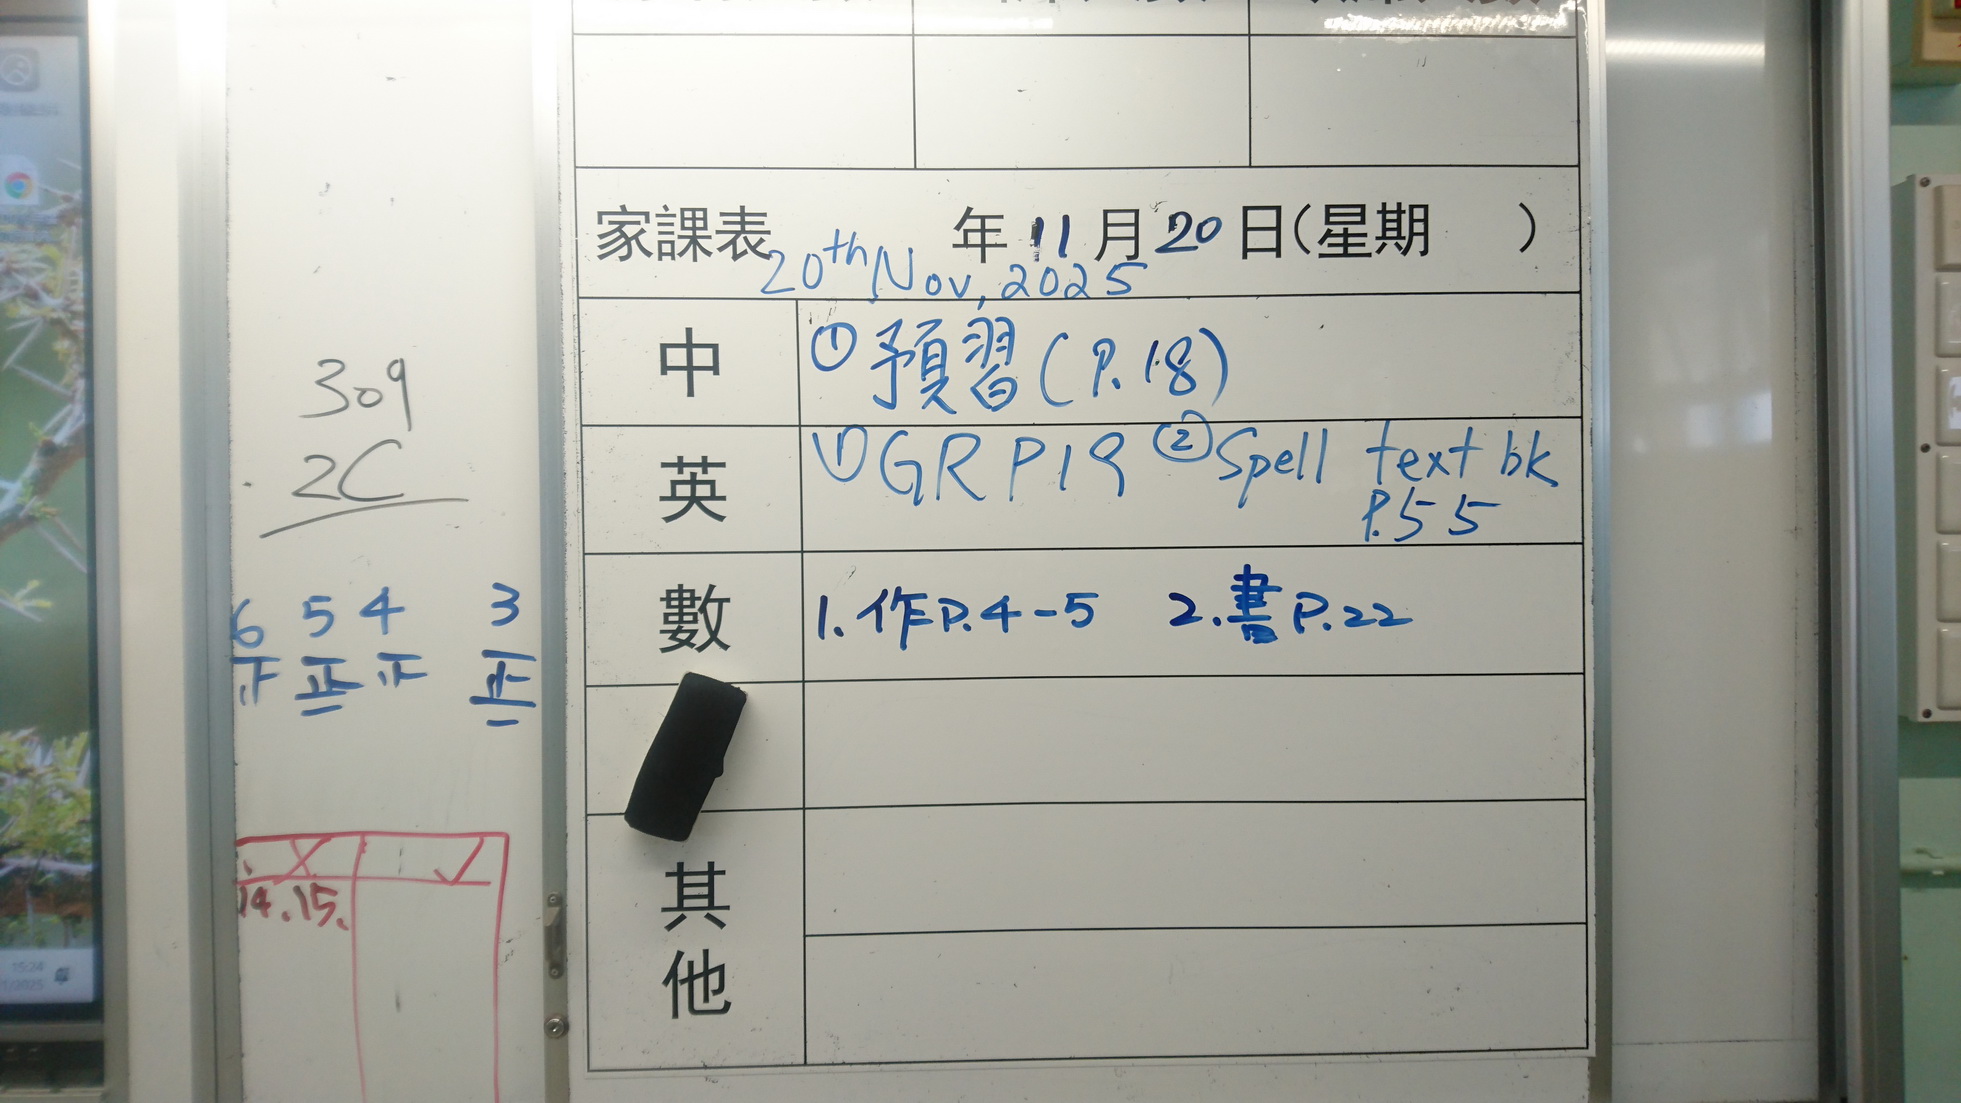 309
2C
6 5 4 3
正 正 正
X ✓
14.15.
15:24
家課表 年 11 月 20 日(星期 )
20th Nov, 2025
中 ① 預習(P.18)
英 ① GR P19 ② Spell text bk
P.55
數 1.作P.4-5 2.書P.22
其
他